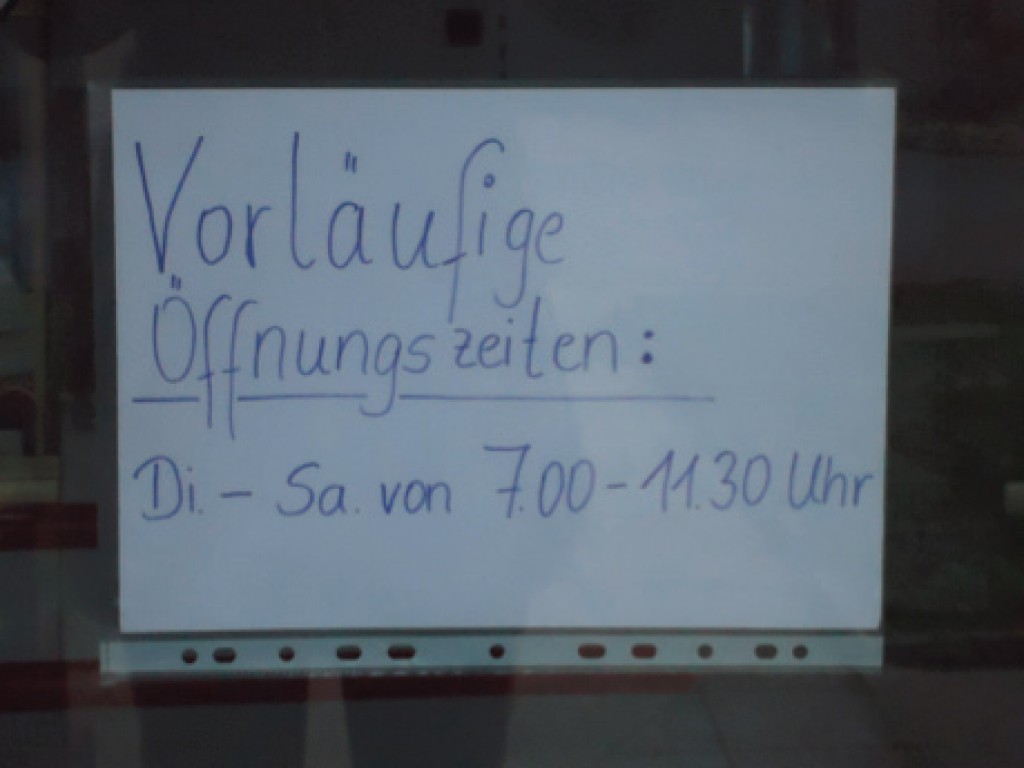 Vorläufige
Öffnungszeiten:
Di. - Sa. von 7.00 - 11.30 Uhr